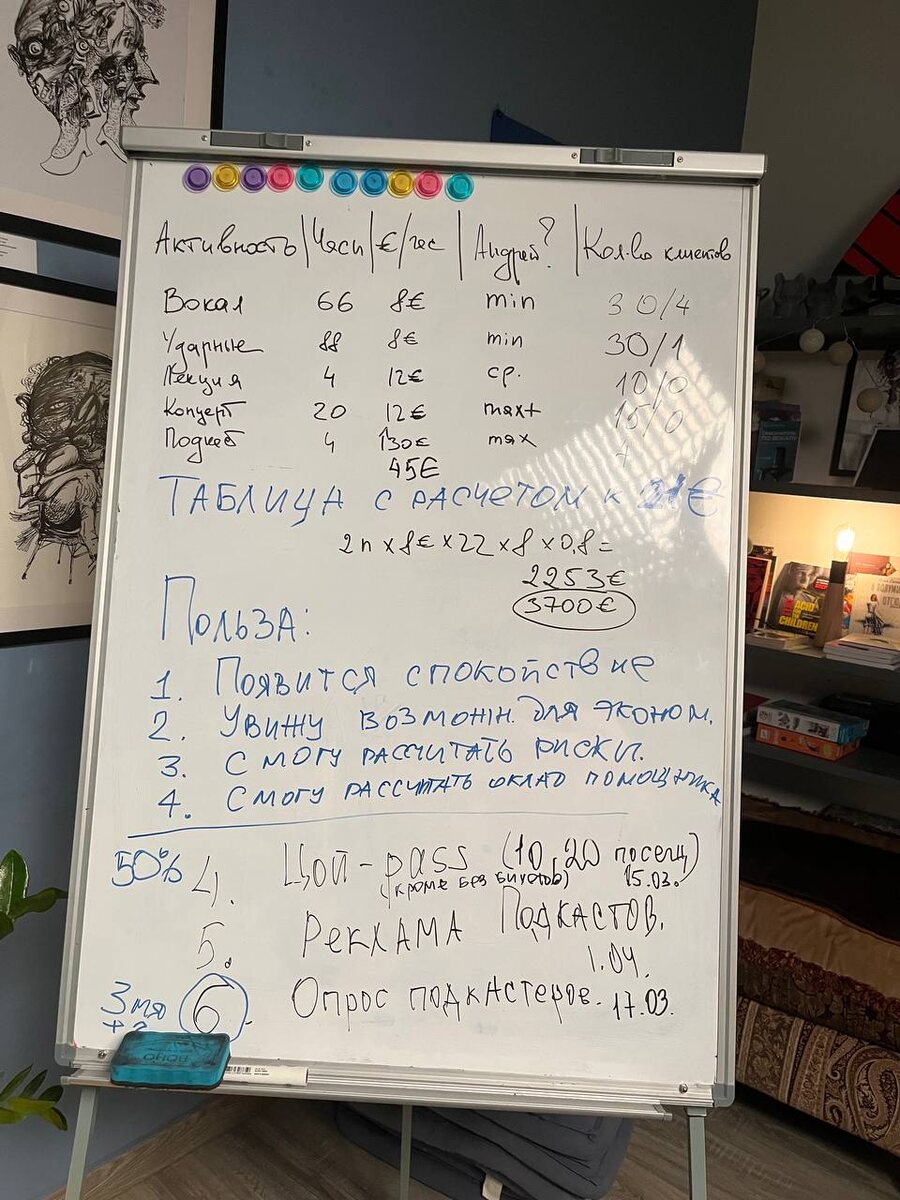 Активность | Часы | €/час | Андрей? | Кол-во клиентов
Вокал 66 8€ min 30/4
Ударные 88 8€ min 30/1
Лекция 4 12€ ср. 10/0
Концерт 20 12€ max+ 15/0
Подкаст 4 130€ max
45€
ТАБЛИЦА С РАСЧЕТОМ К €
2п x 8€ x 22 x 8 x 0,8 =
2253€
3700€
ПОЛЬЗА:
1. ПОЯВИТСЯ СПОКОЙСТВИЕ
2. УВИЖУ ВОЗМОЖН. ДЛЯ ЭКОНОМ.
3. СМОГУ РАССЧИТАТЬ РИСКИ.
4. СМОГУ РАССЧИТАТЬ ОКЛАД ПОМОЩНИКА
50% 4. Цой-pass (10, 20 посещ)
(кроме без билетов) 15.03.
5. РЕКЛАМА ПОДКАСТОВ.
1.04.
6. Опрос подкастеров. 17.03.
3 мя
BOHO
ACID
CHILDREN